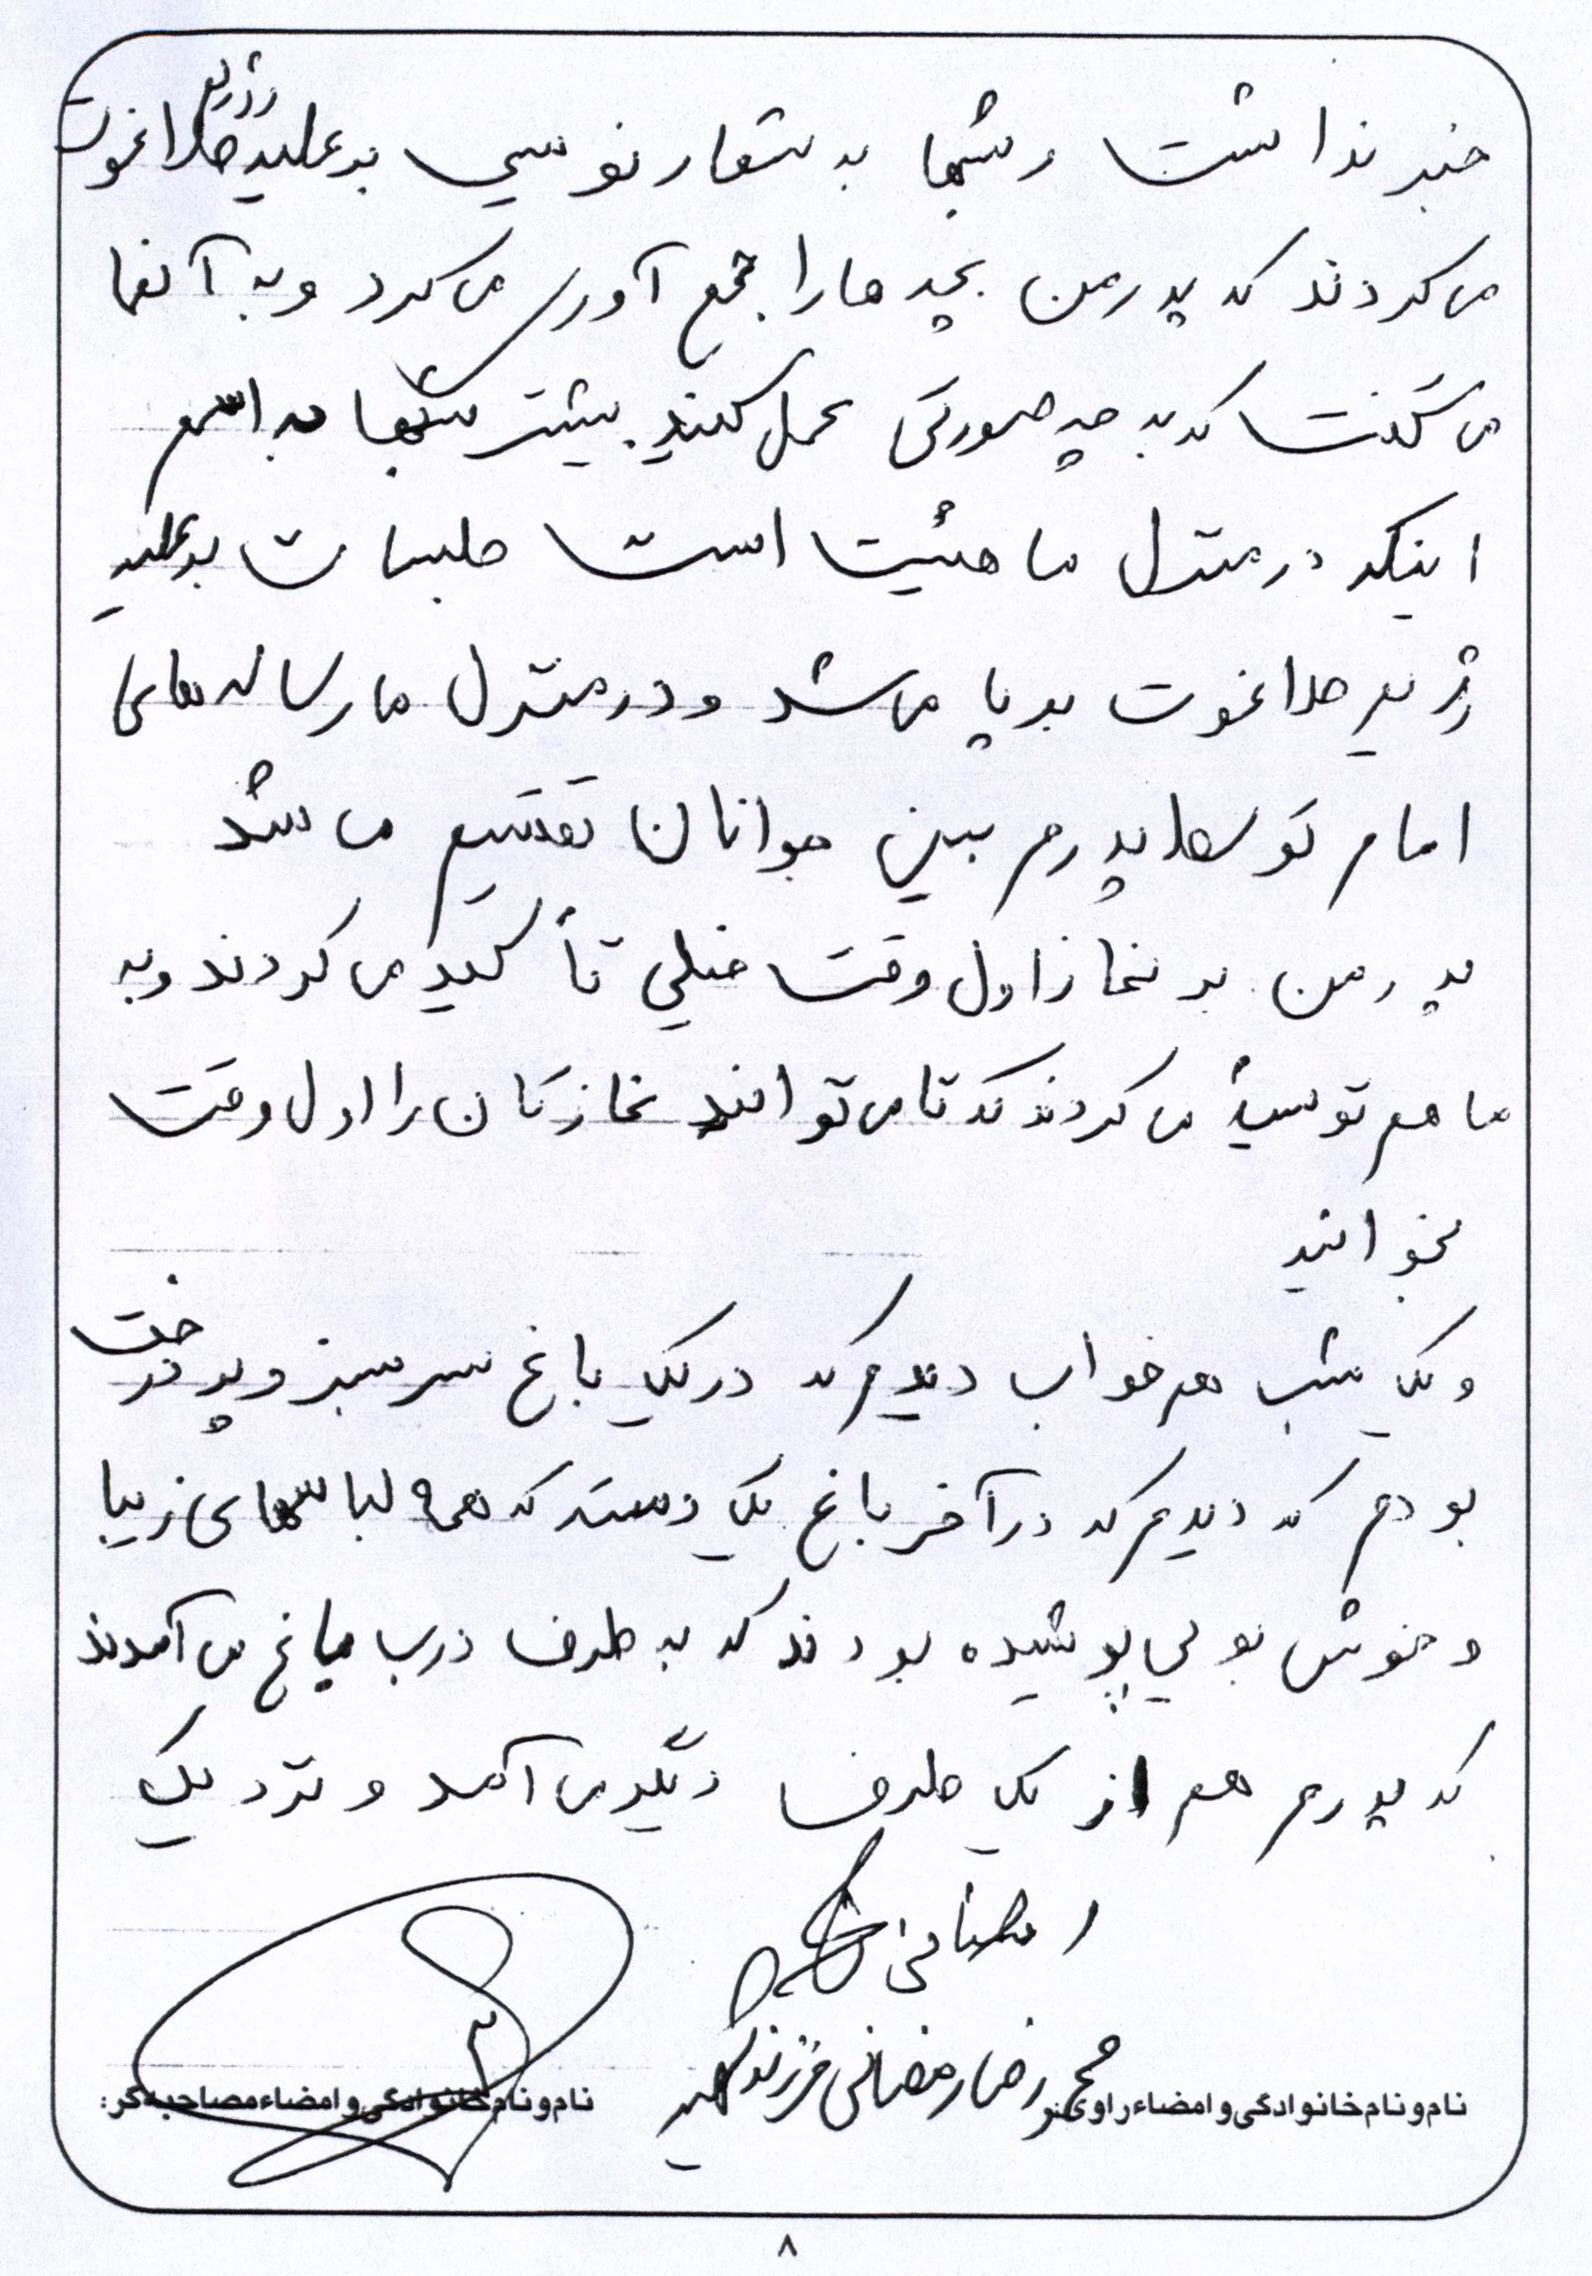 خبر نداشت و شبها به شعار نویسی بر علیه رژیم طاغوت
می کردند که پدر من بچه ها را جمع آوری می کرد و به آنها
می گفت که به چه صورتی عمل کنند بیشتر شبها به اسم
اینکه در منزل ما هئیت است جلسات بر علیه
رژیم طاغوت برپا می شد و در منزل ما رساله های
امام توسط پدرم بین جوانان تقسیم می شد
پدر من بر نماز اول وقت خیلی تأکید می کردند و به
ما هم توسیه می کردند که تا می توانند نمازتان را اول وقت
بخوانید
و یک شب هم خواب دیدم که در یک باغ سرسبز و پر درخت
بودم که دیدم که در آخر باغ یک دسته که همه لباسهای زیبا
و خوش بویی پوشیده بودند که به طرف درب باغ می آمدند
که پدرم هم از یک طرف دیگر می آمد و نزدیک
رمضانی
محمدرضا رمضانی فرزند شهید
نام و نام خانوادگی و امضاء راوی:
نام و نام خانوادگی و امضاء مصاحبه گر:
۸